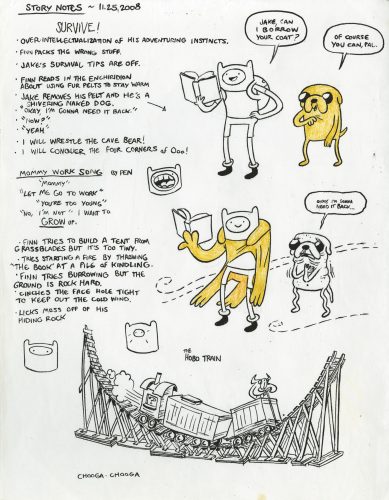 STORY NOTES ~ 11.25.2008
SURVIVE!
• OVER-INTELLECTUALIZATION OF HIS ADVENTURING INSTINCTS.
• FINN PACKS THE WRONG STUFF.
• JAKE'S SURVIVAL TIPS ARE OFF.
• FINN READS IN THE ENCHIRIDION
ABOUT USING FUR PELTS TO STAY WARM
JAKE REMOVES HIS PELT AND HE'S A
SHIVERING NAKED DOG.
"OKAY I'M GONNA NEED IT BACK."
"NOW?"
"YEAH"
• I WILL WRESTLE THE CAVE BEAR!
I WILL CONQUER THE FOUR CORNERS OF OOO!
JAKE, CAN
I BORROW
YOUR COAT?
OF COURSE
YOU CAN, PAL.
MOMMY WORK SONG by PEN
"MOMMY"
"LET ME GO TO WORK"
"YOU'RE TOO YOUNG"
"NO, I'M NOT" I WANT TO
GROW UP.
• FINN TRIES TO BUILD A TENT FROM
GRASSBLADES BUT IT'S TOO TINY.
• TRIES STARTING A FIRE BY THROWING
"THE BOOK" AT A PILE OF KINDLING.
• FINN TRIES BURROWING BUT THE
GROUND IS ROCK HARD.
• CINCHES THE FACE HOLE TIGHT
TO KEEP OUT THE COLD WIND.
• LICKS MOSS OFF OF HIS
HIDING ROCK
OKAY I'M GONNA
NEED IT BACK...
THE
HOBO TRAIN
CHOOGA-CHOOGA